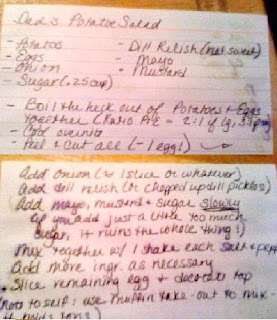 Dad's Potatoe Salad
- Potatos - Dill Relish (not sweet)
- Eggs - Mayo
- Onion - Mustard
- Sugar (.25 cup)
- Boil the heck out of Potatoes + Eggs
together (Ratio P:E = 2:1
- Cool overnite
- Peel + Cut all (-1 egg!)
Add onion (1 slice or whatever)
Add dill relish (or chopped up dill pickles)
Add mayo, mustard + sugar slowly
if you add just a little too much
sugar, it ruins the whole thing!
Mix together w/ 1 shake each salt + pepp
Add more ingr. as necessary
Slice remaining egg + decorate top
(Note to self: use muffin take-out to mix -
it holds tons)